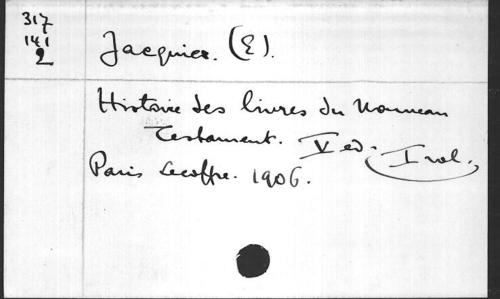 317
141
2
Jacquier. (E).
Histoire des livres du Nouveau
Testament. V ed. I vol.
Paris Lecoffre. 1906.